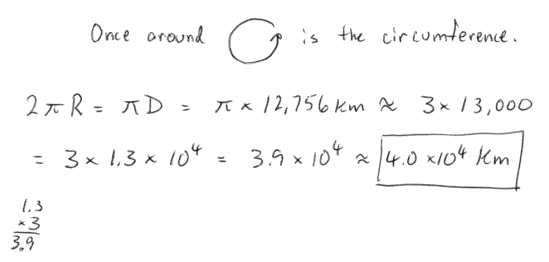 Once around is the circumference.
2πR = πD = π × 12,756 Km ≈ 3 × 13,000
= 3 × 1.3 × 10⁴ = 3.9 × 10⁴ ≈ 4.0 × 10⁴ Km
1.3
×3
3.9